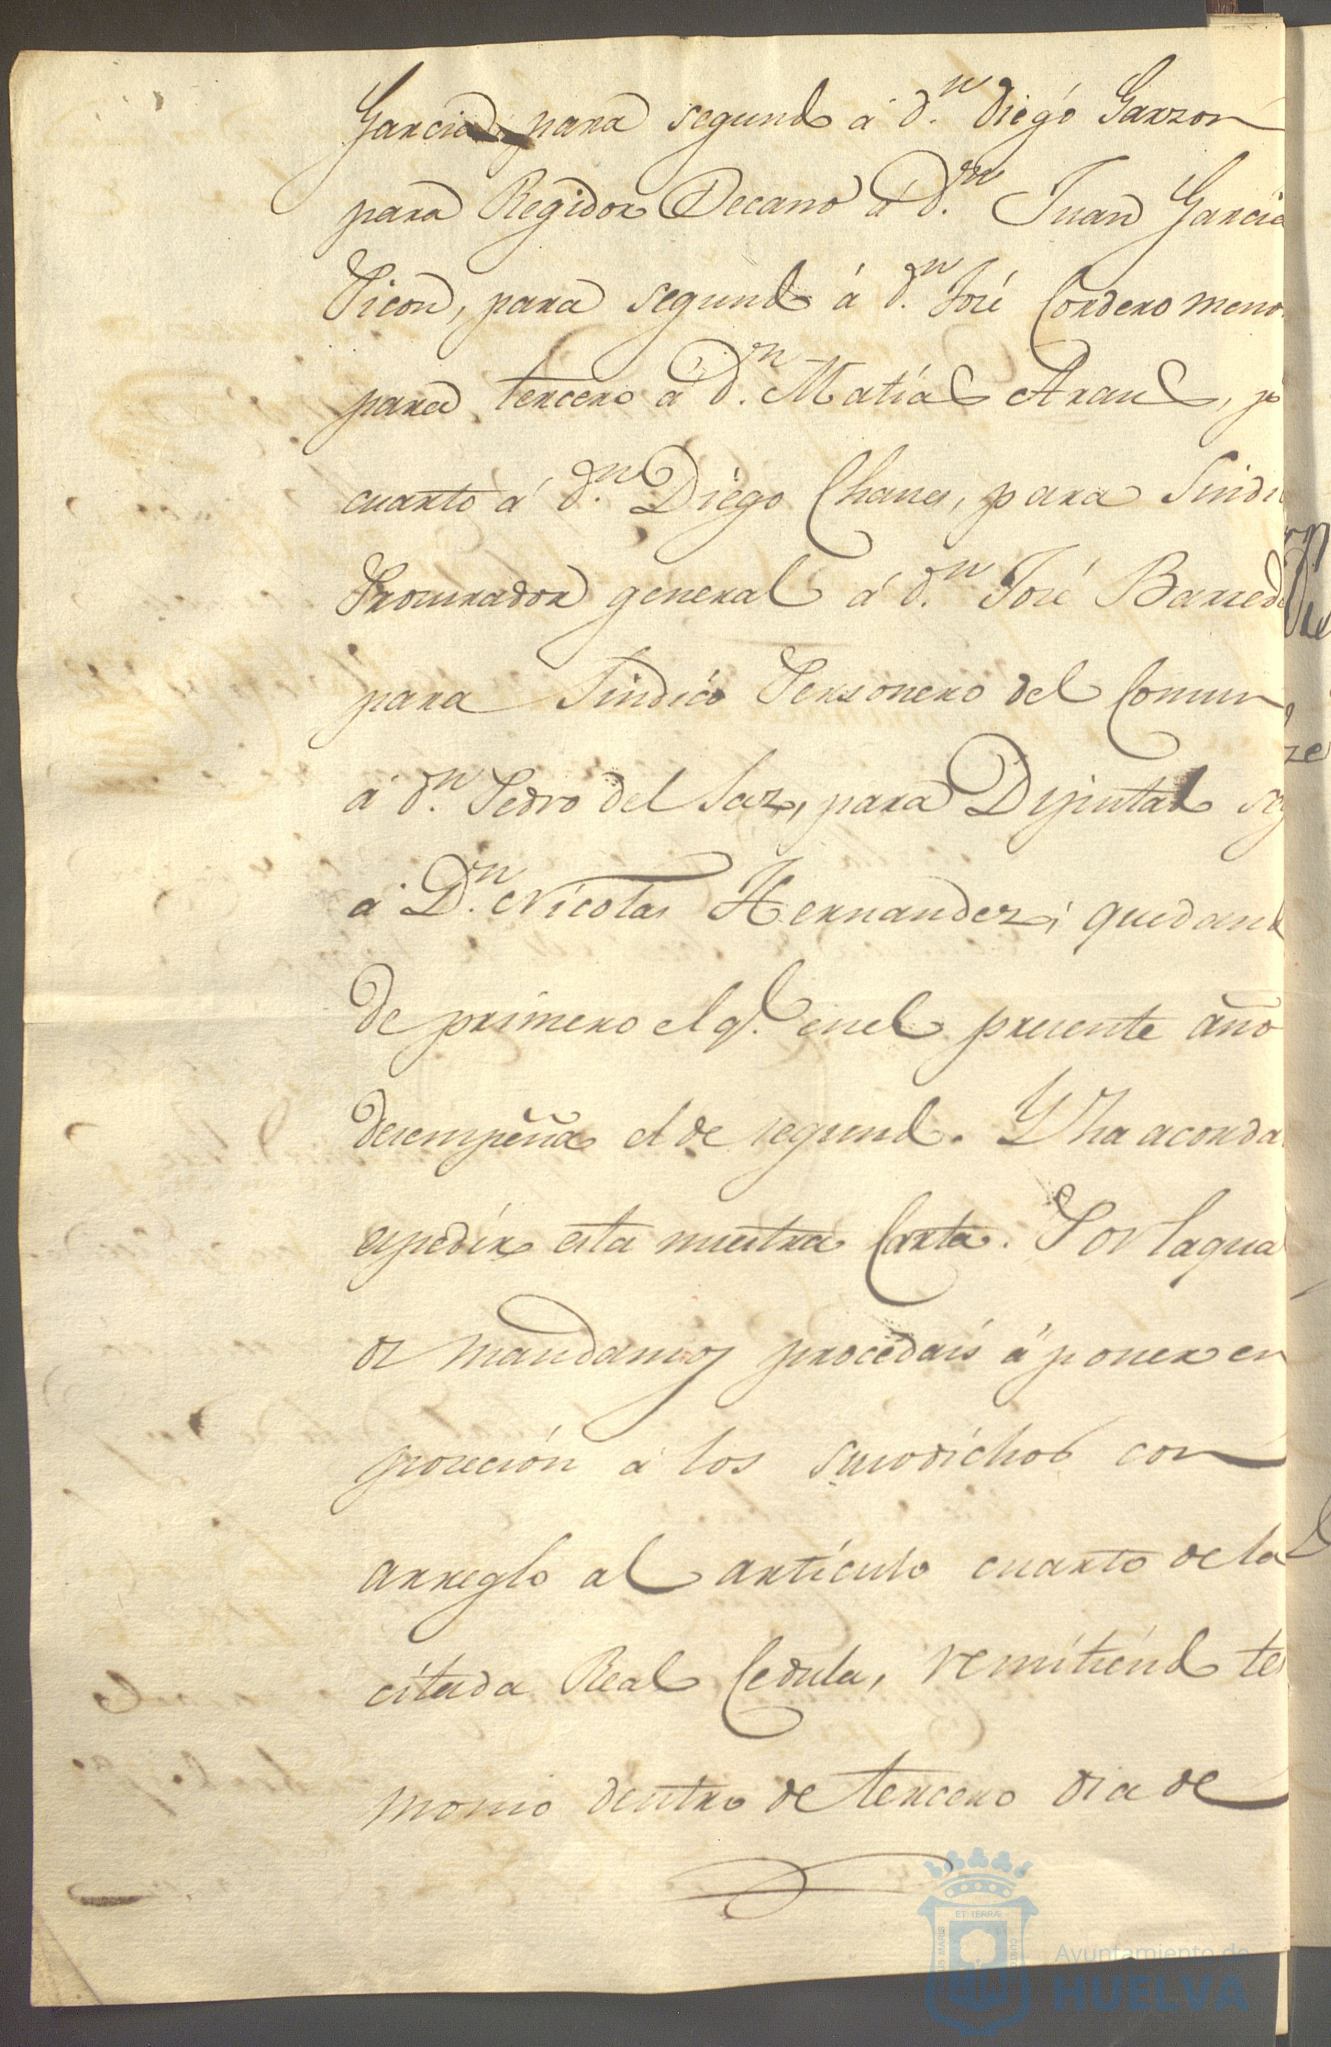 Garcia, para segundo á d.n Diego Garzon
para Regidor Decano á d.n Juan Garcia
Picon, para segundo á d.n José Cordero meno
para tercero á d.n Matías Araus, p
cuarto á d.n Diego Chaves, para Sindi
Procurador general á d.n José Barred
para Sindico Personero del Comun
á d.n Pedro del Saz, para Diputado
á D.n Nicolas Hernandez; quedando
de primero el q.e en el presente año
desempeña el de segundo. Y ha acorda
espedir esta nuestra Carta. Por la qua
os mandamos procedais á poner en
posecion á los susodichos con
arreglo al artículo cuarto de la
citada Real Cedula, remitiendo tes
monio dentro de tercero dia de
ET TERRÆ
Ayuntamiento de
HUELVA